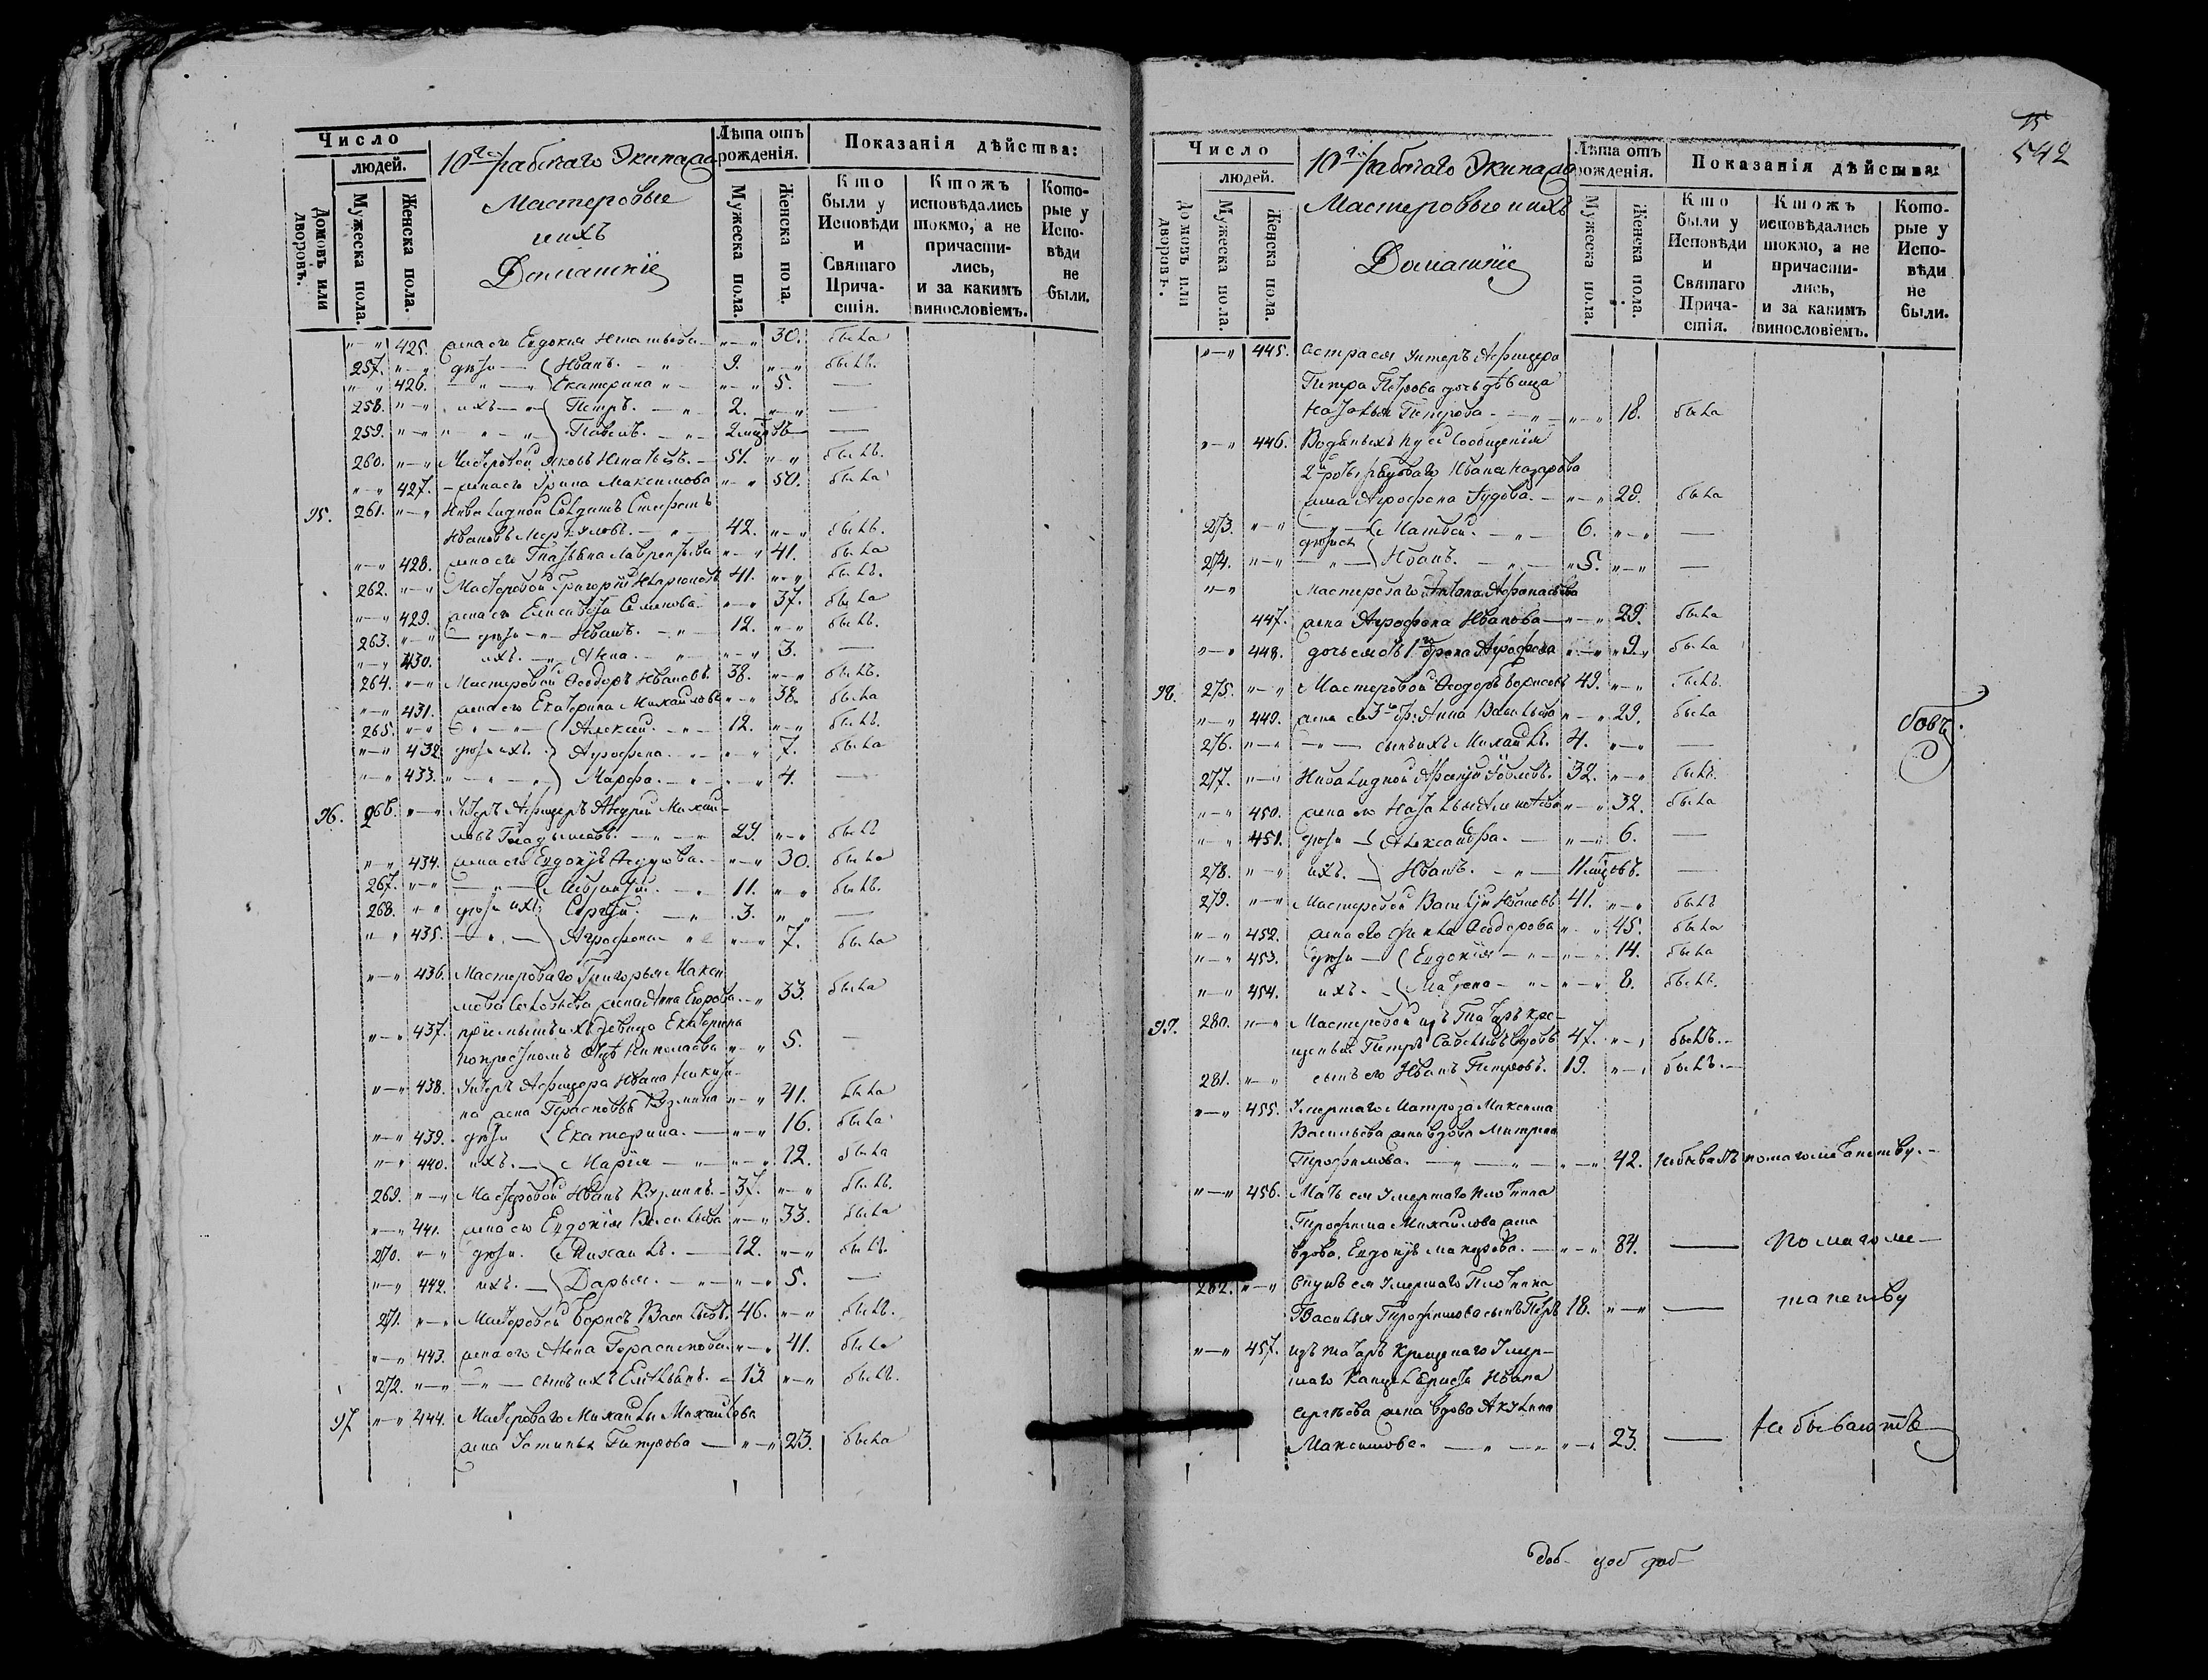 Число
людей.
Домовъ или дворовъ.
Мужеска пола.
Женска пола.
10го рабочаго Экипажа
Мастеровые
и ихъ
Домашніе
Лѣта отъ рожденія.
Мужеска пола.
Женска пола.
Показанія дѣйства:
Кто были у Исповѣди и Святаго Причастія.
Ктожъ исповѣдались токмо, а не причастились, и за какимъ винословіемъ.
Которые у Исповѣди не были.
425. жена его Евдокия Игнатьева 30. была
257. дѣти Иванъ. 9. былъ.
426. Екатерина 5. —
258. ихъ Петръ. 2. —
259. Павелъ. 2 мцовъ —
260. Мастеровой Яковъ Игнатьевъ. 51. былъ.
427. жена его Ирина Максимова 50. была
95. 261. Инвалидной Солдатъ Стефанъ
Ивановъ 42. былъ.
428. жена его Татьяна Лаврентьева 41. была
262. Мастеровой Григорій Иларионовъ 41. былъ.
429. жена его Елисавета Семенова. 37. была
263. дѣти Иванъ. 12. былъ.
430. ихъ. Анна. 3. —
264. Мастеровой Ѳеодоръ Ивановъ. 38. былъ.
431. жена его Екатерина Михайлова 38. была
265. Алексѣй. 12. былъ.
432. дѣти ихъ. Агрофена. 7. была
433. Марфа. 4. —
96. 266. Унтеръ Афицеръ Андрей Михай-
ловъ 29. былъ
434. жена его Евдокія 30. была
267. 11. былъ.
268. дѣти ихъ Сергѣй. 3. —
435. Агрофена 7. была
436. Мастероваго Григорья Макси
мова жена Анна Егорова. 33. была
437. пріемышъ ихъ девица Екатерина
по крестномъ отцѣ Николаева 5. —
438. Унтеръ Афицера Ивана Никити-
на жена Парасковья Кузмина 41. была
439. дѣти Екатерина. 16. была
440. ихъ. Марія 12. была
269. Мастеровой Иванъ Кузминъ. 37. былъ.
441. жена его Евдокія Васильева 33. была
270. дѣти. Михаилъ. 12. былъ.
442. ихъ. Дарья. 5. —
271. Мастеровой Борисъ Васильевъ. 46. былъ.
443. жена его Анна Герасимова. 41. была
272. сынъ ихъ 13 былъ.
97 444. Мастероваго Михаилы Михайлова
жена Устинья Петрова 23. была
15
542
Число
людей.
Домовъ или дворовъ.
Мужеска пола.
Женска пола.
10го рабочаго Экипажа
Мастеровые и ихъ
Домашніе
Лѣта отъ рожденія.
Мужеска пола.
Женска пола.
Показанія дѣйства:
Кто были у Исповѣди и Святаго Причастія.
Ктожъ исповѣдались токмо, а не причастились, и за какимъ винословіемъ.
Которые у Исповѣди не были.
445. сестра ея Унтеръ Афицера
Петра Петрова дочь дѣвица
Наталья Петрова 18. была
446. Водяныхъ Сообщения
2й роты рядоваго Ивана Назарова
жена Агрофена 28. была
273. Матвей. 6. —
дѣти ея
274. Иванъ. 5. —
Мастероваго Антона Афонасьева
447. жена Агрофена Иванова 29. была
448. дочь ево 1го брака Агрофена 9. была
98. 275. Мастеровой Ѳеодоръ Борисовъ 49. былъ.
449. жена Анна Васильева 29. была
276. сынъ ихъ Михайлъ. 4. —
277. Инвалидной 32. былъ.
450. жена его Наталья 32. была
451. дѣти Александра. 6. —
278. ихъ. Иванъ. 11 мцовъ. —
279. Мастеровой Василій Ивановъ 41. былъ
452. жена его Ѳекла Ѳеодорова 45. была
453. дѣти Евдокія 14. была
454. ихъ. Матрена 8. былъ.
99. 280. Мастеровой изъ Татаръ кре-
щеный Петръ вдовъ 47. былъ.
281. сынъ его Иванъ Петровъ. 19. былъ.
455. Умершаго Матроза Максима
Васильева жена вдова Матрена
Трофимова. 42. небываютъ по магометанству.
456. Мать ея Умершаго плотника
Трофима Михайлова жена
вдова, Евдокія 84. — по магоме-
282. внукъ ея Умершаго Плотника
Василья Трофимова сынъ Петръ 18. — танству
457. изъ татаръ Крещенаго Умер-
шаго Ивана
Сергѣева жена вдова Акулина
Максимова. 23. — не бываютъ